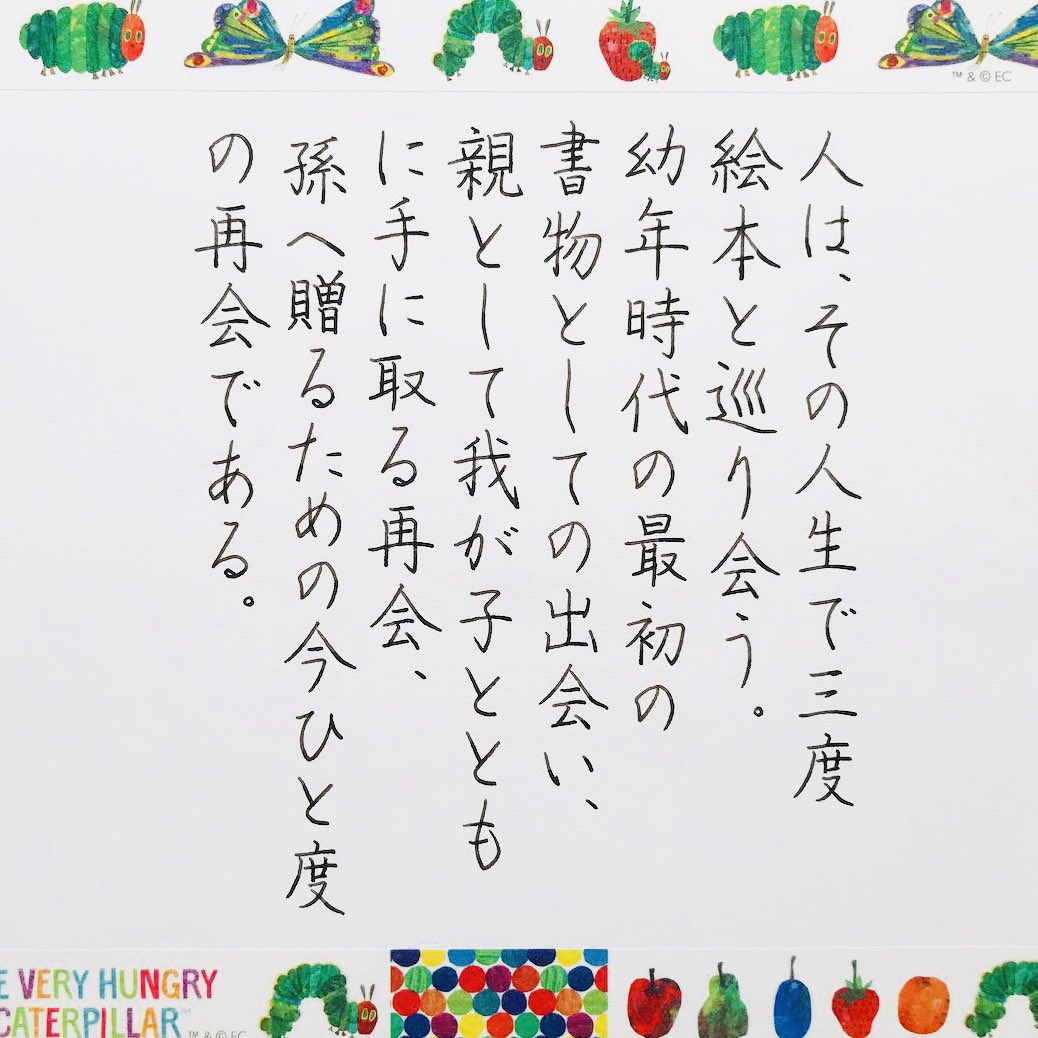 ™ & © EC
人は、その人生で三度
絵本と巡り会う。
幼年時代の最初の
書物としての出会い、
親として我が子ととも
に手に取る再会、
孫へ贈るための今ひと度
の再会である。
E VERY HUNGRY
CATERPILLAR™
™ & © EC